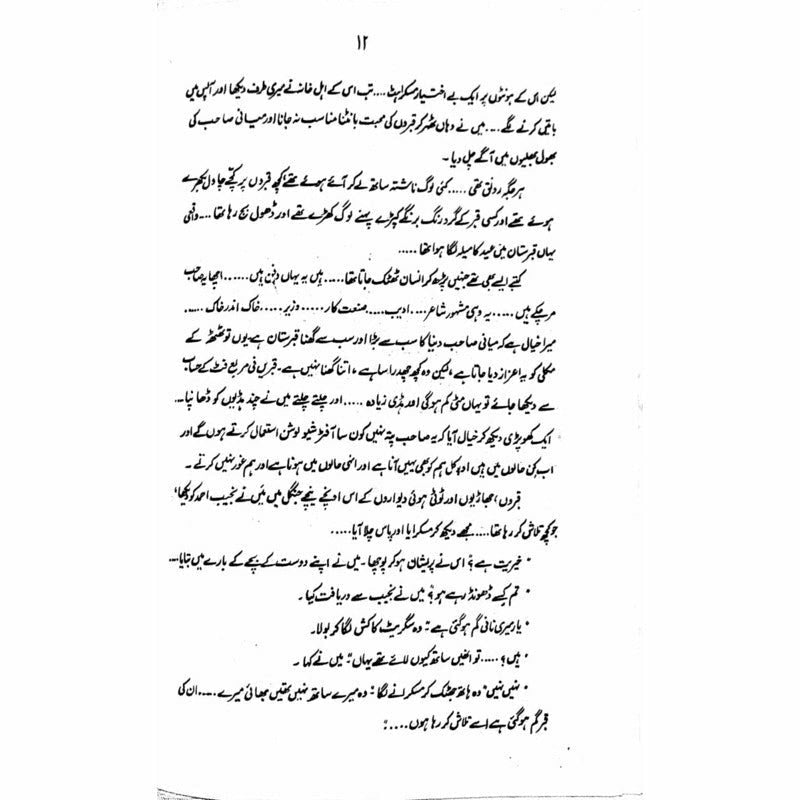 ۱۲
لیکن اس کے ہونٹوں پر ایک بے اختیار مسکراہٹ .... تب اس کے اہل خانہ نے میری طرف دیکھا اور آپس میں
باتیں کرنے لگے .... میں نے وہاں ٹھہر کر قبروں کی محبت بانٹنا مناسب نہ جانا اور میانی صاحب کی
بھول بھلیوں میں آگے چل دیا ۔
ہر جگہ رونق تھی ..... کئی لوگ ناشتہ ساتھ لے کر آئے ہوئے تھے کچھ قبروں پر کچے چاول بکھرے
ہوئے تھے اور کسی قبر کے گرد رنگ برنگے کپڑے پہنے لوگ کھڑے تھے اور ڈھول بج رہا تھا .... واقعی
یہاں قبرستان میں عید کا میلہ لگا ہوا تھا .....
کتبے ایسے بھی تھے جنہیں پڑھ کر انسان ٹھٹک جاتا تھا ..... ہیں یہ یہاں دفن ہیں ...... اچھا یہ صاحب
مر چکے ہیں ..... یہ وہی مشہور شاعر .... ادیب ..... صنعت کار ..... وزیر ..... خاک اندر خاک .....
میرا خیال ہے کہ میانی صاحب دنیا کا سب سے بڑا اور سب سے گھنا قبرستان ہے۔ یوں تو ٹھٹھر کے
مکلی کو یہ اعزاز دیا جاتا ہے ، لیکن وہ کچھ چھدرا سا ہے ، اتنا گھنا نہیں ہے۔ قبریں فی مربع فٹ کے حساب
سے دیکھا جائے تو یہاں مٹی کم ہوگی اور ہڈی زیادہ ..... اور چلتے چلتے میں نے چند ہڈیوں کو ڈھانپا ....
ایک کھوپڑی دیکھ کر خیال آیا کہ یہ صاحب پتہ نہیں کون سا آفٹر شیو لوشن استعمال کرتے ہوں گے اور
اب کن حالوں میں ہیں اور کل ہم کو بھی یہیں آنا ہے اور انہی حالوں میں ہونا ہے اور ہم غور نہیں کرتے ۔
قبروں ، جھاڑیوں اور ٹوٹی ہوئی دیواروں کے اس اونچے نیچے جنگل میں میں نے نجیب احمد کو دیکھا ،
جو کچھ تلاش کر رہا تھا .... مجھے دیکھ کر مسکرایا اور پاس چلا آیا .....
" خیریت ہے ؟ اس نے پریشان ہو کر پوچھا ۔ میں نے اپنے دوست کے بچے کے بارے میں بتایا ....
" تم کسے ڈھونڈ رہے ہو ؟" میں نے نجیب سے دریافت کیا ۔
" یار میری نانی گم ہوگئی ہے " وہ سگریٹ کا کش لگا کر بولا۔
" ہیں ؟ ..... تو انہیں ساتھ کیوں لائے تھے یہاں " میں نے کہا ۔
" نہیں نہیں " وہ ہاتھ جھٹک کر مسکرانے لگا " وہ میرے ساتھ نہیں تھیں بھائی میرے ..... ان کی
قبر گم ہوگئی ہے اسے تلاش کر رہا ہوں ..... "